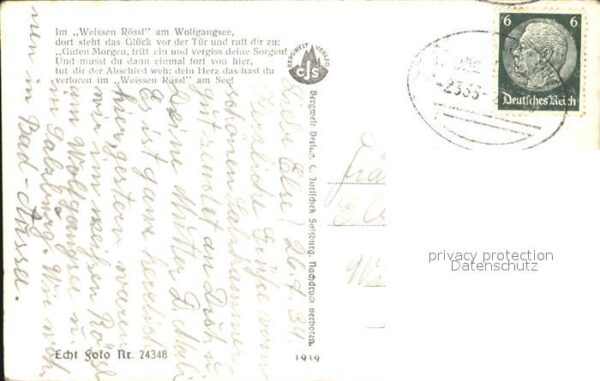 Im „Weissen Rössl" am Wolfgangsee,
dort steht das Glück vor der Tür und ruft dir zu:
„Guten Morgen, tritt ein und vergiss deine Sorgen!
Und musst du dann einmal fort von hier,
tut dir der Abschied weh; dein Herz das hast du
verloren im „Weissen Rössl" am See!"
BERGWELT VERLAG
CJS
6 6
Deutsches Reich
Bergwelt Verlag C. Jurischek Salzburg. Nachdruck verboten.
Liebe Else! 26.4.39.
Herzliche Grüße vom
schönen Salzkammer-
gut sendet an Dich u.
Deine Mutter D.
Es ist ganz herrlich
hier, gestern waren
wir im weißen Rössl
am Wolfgangsee u.
in Salzburg. Wir woh-
nen in Bad-Aussee.
privacy protection
Datenschutz
Echt Foto Nr. 24348
1939